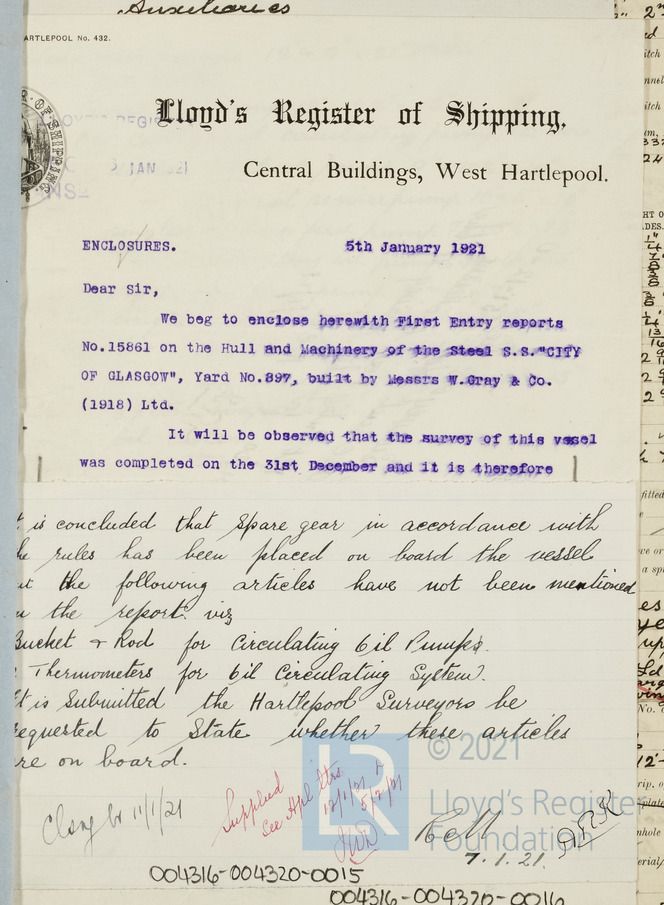 Auxiliaries
ARTLEPOOL No. 432.
Lloyd's Register of Shipping,
Central Buildings, West Hartlepool.
ENCLOSURES. 5th January 1921
Dear Sir,
We beg to enclose herewith First Entry reports
No.15861 on the Hull and Machinery of the Steel S.S."CITY
OF GLASGOW", Yard No.897, built by Messrs W.Gray & Co.
(1918) Ltd.
It will be observed that the survey of this vessel
was completed on the 31st December and it is therefore
t is concluded that Spare gear in accordance with
he rules has been placed on board the vessel
ut the following articles have not been mentioned
n the report. viz
Bucket & Rod for Circulating Oil Pumps.
Thermometers for Oil Circulating System.
It is Submitted the Hartlepool Surveyors be
requested to State whether these articles
re on board.
11/1/21
Supplied
See Hpl ltrs
12/1/21 &
5/2/21
7.1.21.
© 2021
Lloyd's Register
Foundation
004316-004320-0015
004316-004320-0016